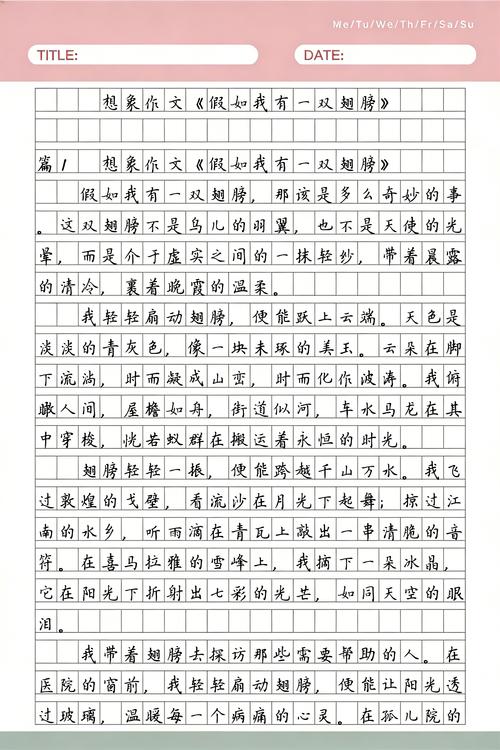 Me/Tu/We/Th/Fr/Sa/Su
TITLE:
DATE:
想象作文《假如我有一双翅膀》
篇1 想象作文《假如我有一双翅膀》
假如我有一双翅膀，那该是多么奇妙的事
。这双翅膀不是鸟儿的羽翼，也不是天使的光
晕，而是介于虚实之间的一抹轻纱，带着晨露
的清冷，裹着晚霞的温柔。
我轻轻扇动翅膀，便能跃上云端。天色是
淡淡的青灰色，像一块未琢的美玉。云朵在脚
下流淌，时而凝成山峦，时而化作波涛。我俯
瞰人间，屋檐如舟，街道似河，车水马龙在其
中穿梭，恍若蚁群在搬运着永恒的时光。
翅膀轻轻一振，便能跨越千山万水。我飞
过敦煌的戈壁，看流沙在月光下起舞；掠过江
南的水乡，听雨滴在青瓦上敲出一串清脆的音
符。在喜马拉雅的雪峰上，我摘下一朵冰晶，
它在阳光下折射出七彩的光芒，如同天空的眼
泪。
我带着翅膀去探访那些需要帮助的人。在
医院的窗前，我轻轻扇动翅膀，便能让阳光透
过玻璃，温暖每一个病痛的心灵。在孤儿院的